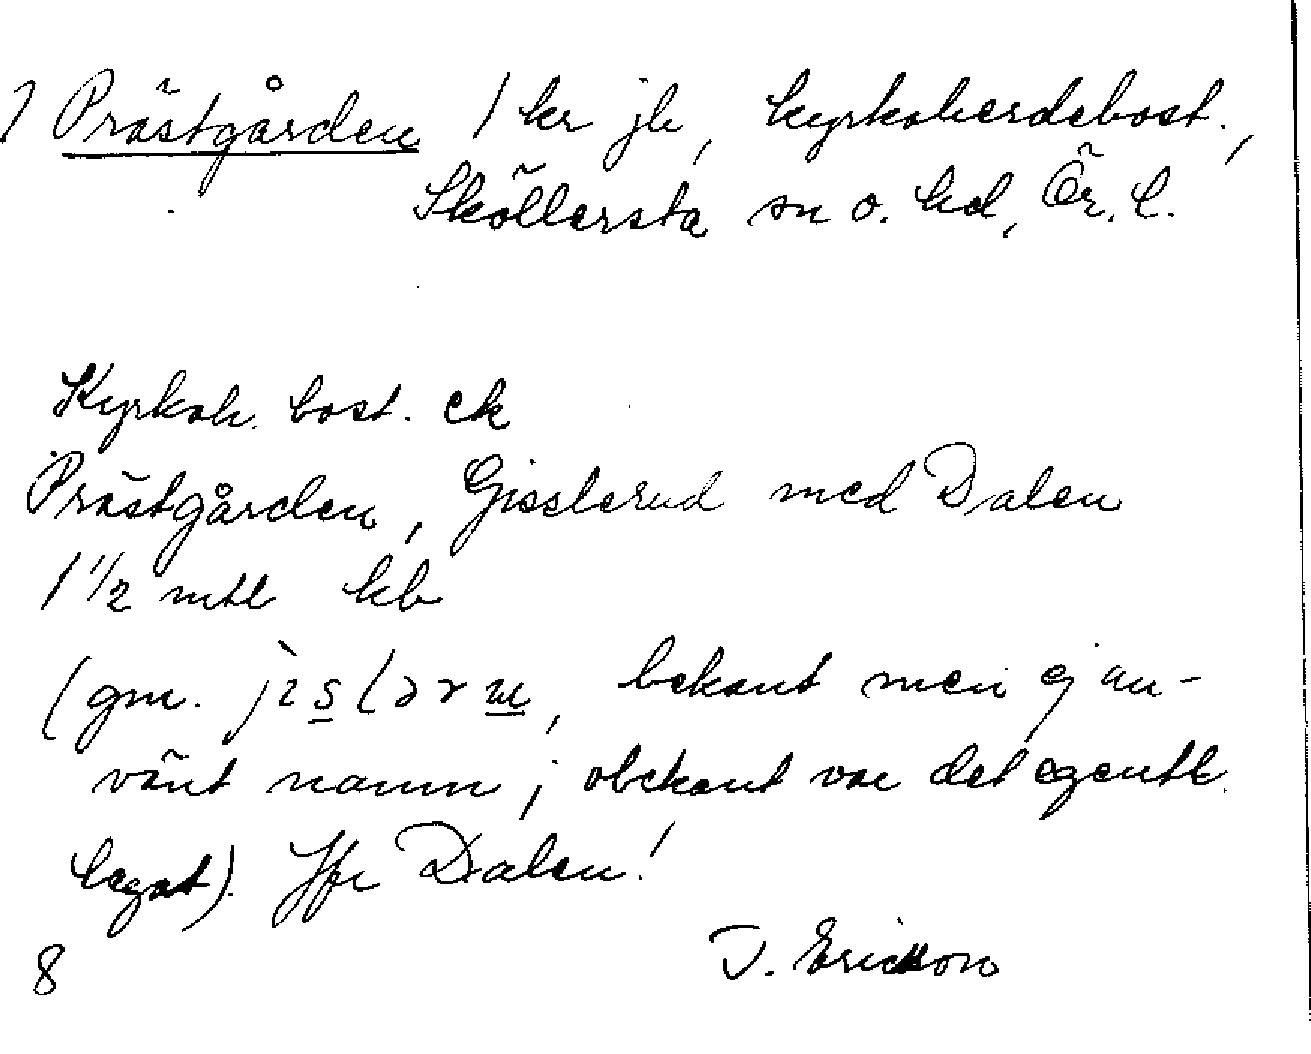 ) Prästgården 1 kr jb, kyrkoherdebost.,
Sköllersta sn o. hd, Ör. l.
Kyrkoh. bost. ek
Prästgården, Gisslerud med Dalen
1 1/2 mtl kb
(gm. , bekant men ej an-
vänt namn; obekant var det egentl.
legat). Jfr Dalen!
8 Ericsson